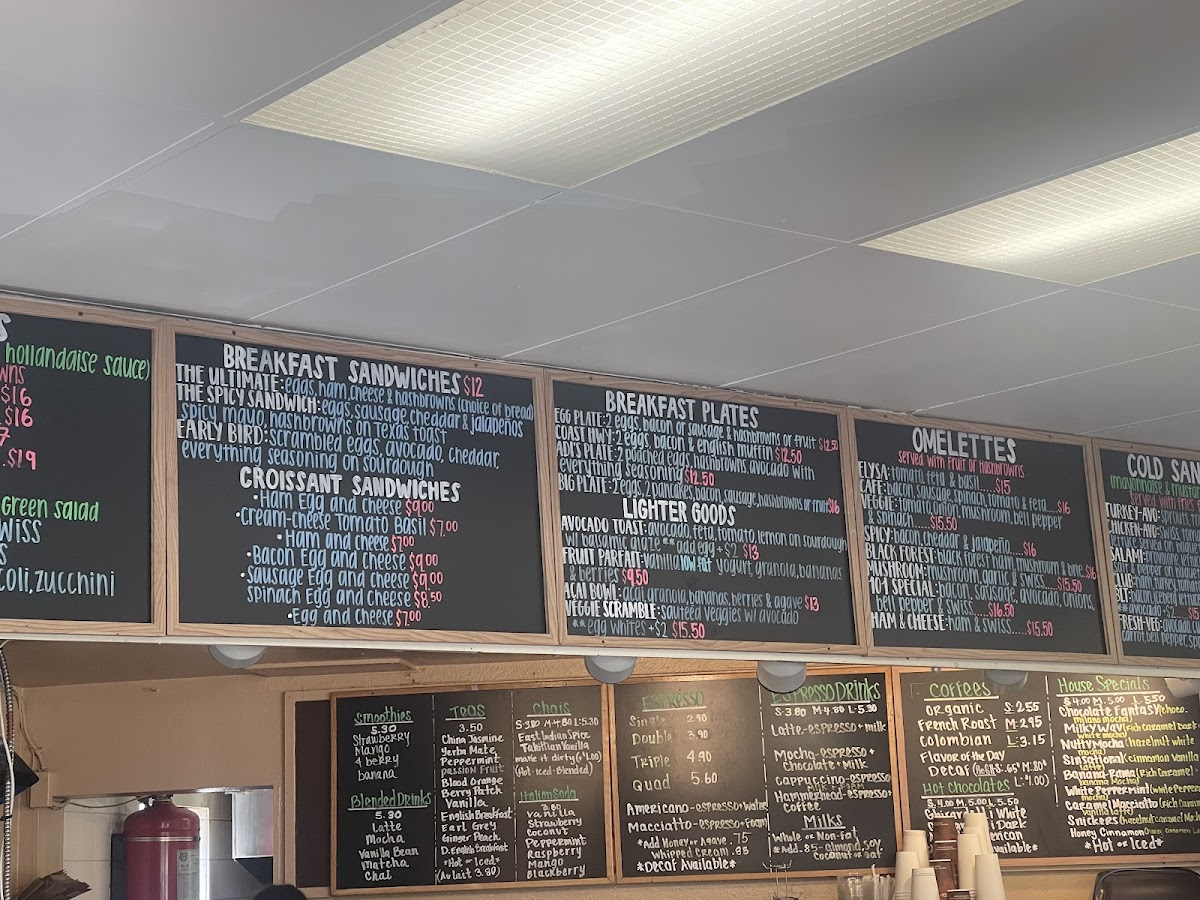 hollandaise sauce)
$16
$16
7
$19
green salad
coli, zucchini
BREAKFAST SANDWICHES $12
THE ULTIMATE: eggs, ham, cheese & hashbrowns (choice of bread)
THE SPICY SANDWICH: eggs, sausage, cheddar & jalapeños
spicy mayo, hashbrowns on Texas toast
EARLY BIRD: scrambled eggs, avocado, cheddar,
everything seasoning on sourdough
CROISSANT SANDWICHES
•Ham Egg and Cheese $9.00
•Cream-cheese Tomato Basil $7.00
•Ham and cheese $7.00
•Bacon Egg and Cheese $9.00
•Sausage Egg and Cheese $9.00
Spinach Egg and Cheese $8.50
•Egg and Cheese $7.00
BREAKFAST PLATES
EGG PLATE: 2 eggs, bacon or sausage & hashbrowns or fruit $12.50
COAST HWY: 2 eggs, bacon & english muffin $12.50
ADI'S PLATE: 2 poached eggs, hashbrowns, avocado with
everything seasoning $12.50
BIG PLATE: 2 eggs, 2 pancakes, bacon, sausage, hashbrowns or fruit $16
LIGHTER GOODS
AVOCADO TOAST: avocado, feta, tomato, lemon on sourdough
w/ balsamic glaze ** add egg +$2 $13
FRUIT PARFAIT: vanilla low fat yogurt, granola, bananas
& berries $9.50
ACAI BOWL: acai, granola, bananas, berries & agave $13
VEGGIE SCRAMBLE: sautéed veggies w/ avocado
** egg whites +$2 $15.50
OMELETTES
served with fruit or hashbrowns
ELYSA: tomato, feta & basil $15
CAFE: bacon, sausage, spinach, tomato & feta....$16
VEGGIE: tomato, onion, mushroom, bell pepper
& spinach.....$15.50
SPICY: bacon, cheddar & jalapeño....$16
BLACK FOREST: black forest ham, mushroom & brie..$16
MUSHROOM: mushroom, garlic & swiss....$15.50
101 SPECIAL: bacon, sausage, avocado, onions,
bell pepper & swiss....$16.50
HAM & CHEESE: ham & swiss.....$15.50
COLD SAN
(mayonnaise & mustar
served with fries
TURKEY-AVO: sprouts
CHICKEN-AVO: swiss, toma
SALAMI:
CLUB:
BLT:
FRESH-VEG: avocado
carrot, bell pepper, sp
Smoothies
5.30
Strawberry
Mango
4 berry
banana
Blended Drinks
5.30
Latte
Mocha
Vanilla Bean
Matcha
Chai
Teas
3.50
China Jasmine
Yerba Mate
Peppermint
Passion Fruit
Blood Orange
Berry Patch
Vanilla
English Breakfast
Earl Grey
Ginger Peach
D. English Breakfast
•Hot or Iced•
(Au lait 3.80)
Chais
S-3.80 M-4.80 L-5.30
East Indian Spice
Tahitian Vanilla
make it dirty ($1.00)
(Hot-iced-Blended)
Italian Soda
Vanilla
Strawberry
Coconut
Peppermint
Raspberry
Mango
Blackberry
Espresso
Single 2.90
Double 3.90
Triple 4.90
Quad 5.60
Americano-espresso+water
Macchiato-espresso+foam
*Add Honey or Agave .75
Whipped cream .85
*Decaf Available*
Espresso Drinks
S-3.80 M-4.80 L-5.30
Latte-espresso+milk
Mocha-espresso+
Chocolate+Milk
Cappuccino-espresso
Milk+foam
Hammerhead-espresso+
Coffee
Milks
Whole or Non-fat
*Add .85-almond, soy,
Coconut or oat
Coffees
Organic S: 2.55
French Roast M: 2.95
Colombian L: 3.15
Flavor of the Day
Decaf
Hot Chocolates
S. 4.00 M. 5.00 L 5.50
White
Dark
House Specials
S 4.00 M 5.00 L 5.50
Chocolate Fantasy (choco.
milano mocha)
Milky Way (rich caramel Dark
white mocha)
Nutty Mocha (hazelnut white
mocha)
Sinsational (cinnamon vanilla
latte)
Banana-Rama (Rich Caramel
Banana Mocha)
White Peppermint (white Pepper
mocha)
Caramel Macciatto (rich Caram
vanilla latte)
Snickers (hazelnut caramel Mocha
Honey Cinnamon
*Hot or Iced*